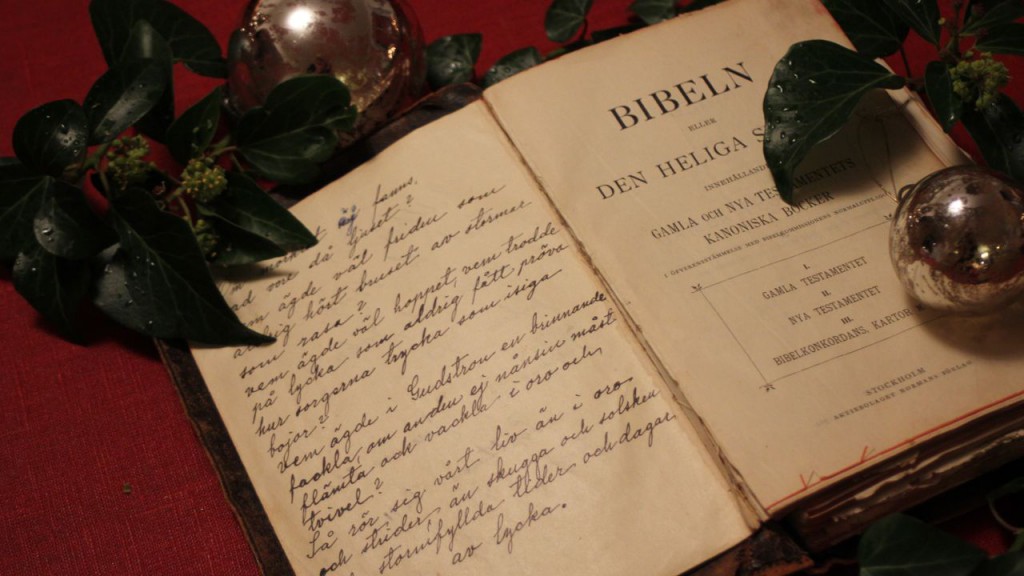 fanns,
då ljuset?
vem ägde väl friden som
aldrig hört bruset av stormar
som rasa?
vem ägde väl hoppet, vem trodde
på lycka som aldrig fått pröva
hur sorgerna trycka som isiga
bojor?
Vem ägde i Gudstron en brinnande
fackla, om anden ej nånsin måst
flämta och vackla i oro och
tvivel?
Så rör sig vårt liv än i oro
och strider, än skugga och solsken
stormfyllda tider och dagar
av lycka.
BIBELN
ELLER
DEN HELIGA
INNEHÅLLANDE
GAMLA OCH NYA TESTAMENTETS
KANONISKA BÖCKER
I.
GAMLA TESTAMENTET
II.
NYA TESTAMENTET
III.
BIBELKONKORDANS, KARTOR
STOCKHOLM